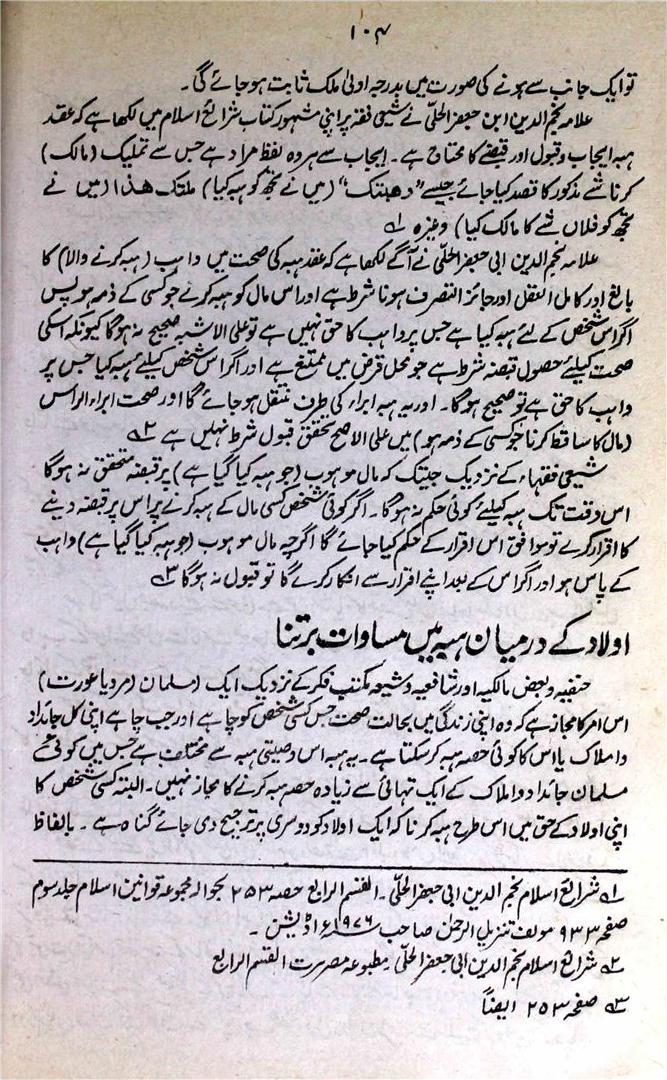 ۱۰۴
تو ایک جانب سے ہونے کی صورت میں بدرجہ اولیٰ ملک ثابت ہو جائے گی۔
علامہ نجم الدین ابن جعفر الحلّی نے شیعی فقہ پر اپنی مشہور کتاب شرائع اسلام میں لکھا ہے کہ عقد
ہبہ ایجاب و قبول اور قبضے کا محتاج ہے۔ ایجاب سے ہر وہ لفظ مراد ہے جس سے تملیک (مالک)
کرنا شے مذکور کا قصد کیا جائے جیسے "وھبتک" (میں نے تجھ کو ہبہ کیا) ملکتک ھذا (میں نے
تجھ کو فلاں شے کا مالک کیا) وغیرہ ۱؎
علامہ نجم الدین ابی جعفر الحلّی نے آگے لکھا ہے کہ عقد ہبہ کی صحت میں واہب (ہبہ کرنے والا) کا
بالغ اور کامل العقل اور جائز التصرف ہونا شرط ہے اور اس مال کو ہبہ کرے جو کسی کے ذمہ ہو پس
اگر اس شخص کے لئے ہبہ کیا ہے جس پر واہب کا حق نہیں ہے تو علی الاشبہ صحیح نہ ہوگا کیونکہ اسکی
صحت کیلئے حصول قبضہ شرط ہے جو محل قرض میں ممتنع ہے اور اگر اس شخص کیلئے ہبہ کیا جس پر
واہب کا حق ہے تو صحیح ہوگا۔ اور یہ ہبہ ابراء کی طرف منتقل ہو جائے گا اور صحت ابراء الراس
(مال کا ساقط کرنا جو کسی کے ذمہ ہو) میں علی الاصح تحقق قبول شرط نہیں ہے ۲؎
شیعی فقہاء کے نزدیک جبتک کہ مال موہوب (جو ہبہ کیا گیا ہے) پر قبضہ متحقق نہ ہوگا
اس وقت تک ہبہ کیلئے کوئی حکم نہ ہوگا۔ اگر کوئی شخص کسی مال کے ہبہ کرنے پر اس پر قبضہ دینے
کا اقرار کرے تو موافق اس اقرار کے حکم کیا جائے گا اگرچہ مال موہوب (جو ہبہ کیا گیا ہے) واہب
کے پاس ہو اور اگر اس کے بعد اپنے اقرار سے انکار کرے گا تو قبول نہ ہوگا ۳؎
اولاد کے درمیان ہبہ میں مساوات برتنا
حنفیہ و بعض مالکیہ اور شافعیہ و شیعہ مکتب فکر کے نزدیک ایک (مسلمان (مرد یا عورت)
اس امر کا مجاز ہے کہ وہ اپنی زندگی میں بحالت صحت جس کسی شخص کو چاہے اور جب چاہے اپنی کل جائداد
و املاک یا اس کا کوئی حصہ ہبہ کر سکتا ہے۔ یہ ہبہ اس وصیتی ہبہ سے مختلف ہے جس میں کوئی
مسلمان جائداد و املاک کے ایک تہائی سے زیادہ حصہ ہبہ کرنے کا مجاز نہیں۔ البتہ کسی شخص کا
اپنی اولاد کے حق میں اس طرح ہبہ کرنا کہ ایک اولاد کو دوسری پر ترجیح دی جائے گناہ ہے۔ بالفاظ
۱؎ شرائع اسلام نجم الدین ابی جعفر الحلّی۔ القسم الرابع حصہ ۲۵۳ بحوالہ مجموعہ قوانین اسلام جلد سوم
صفحہ ۹۳۳ مولف تنزیل الرحمٰن صاحب ۱۹۷۶ء اڈیشن۔
۲؎ شرائع اسلام نجم الدین ابی جعفر الحلّی مطبوعہ مصر القسم الرابع
۳؎ صفحہ ۲۵۳ ایضاً